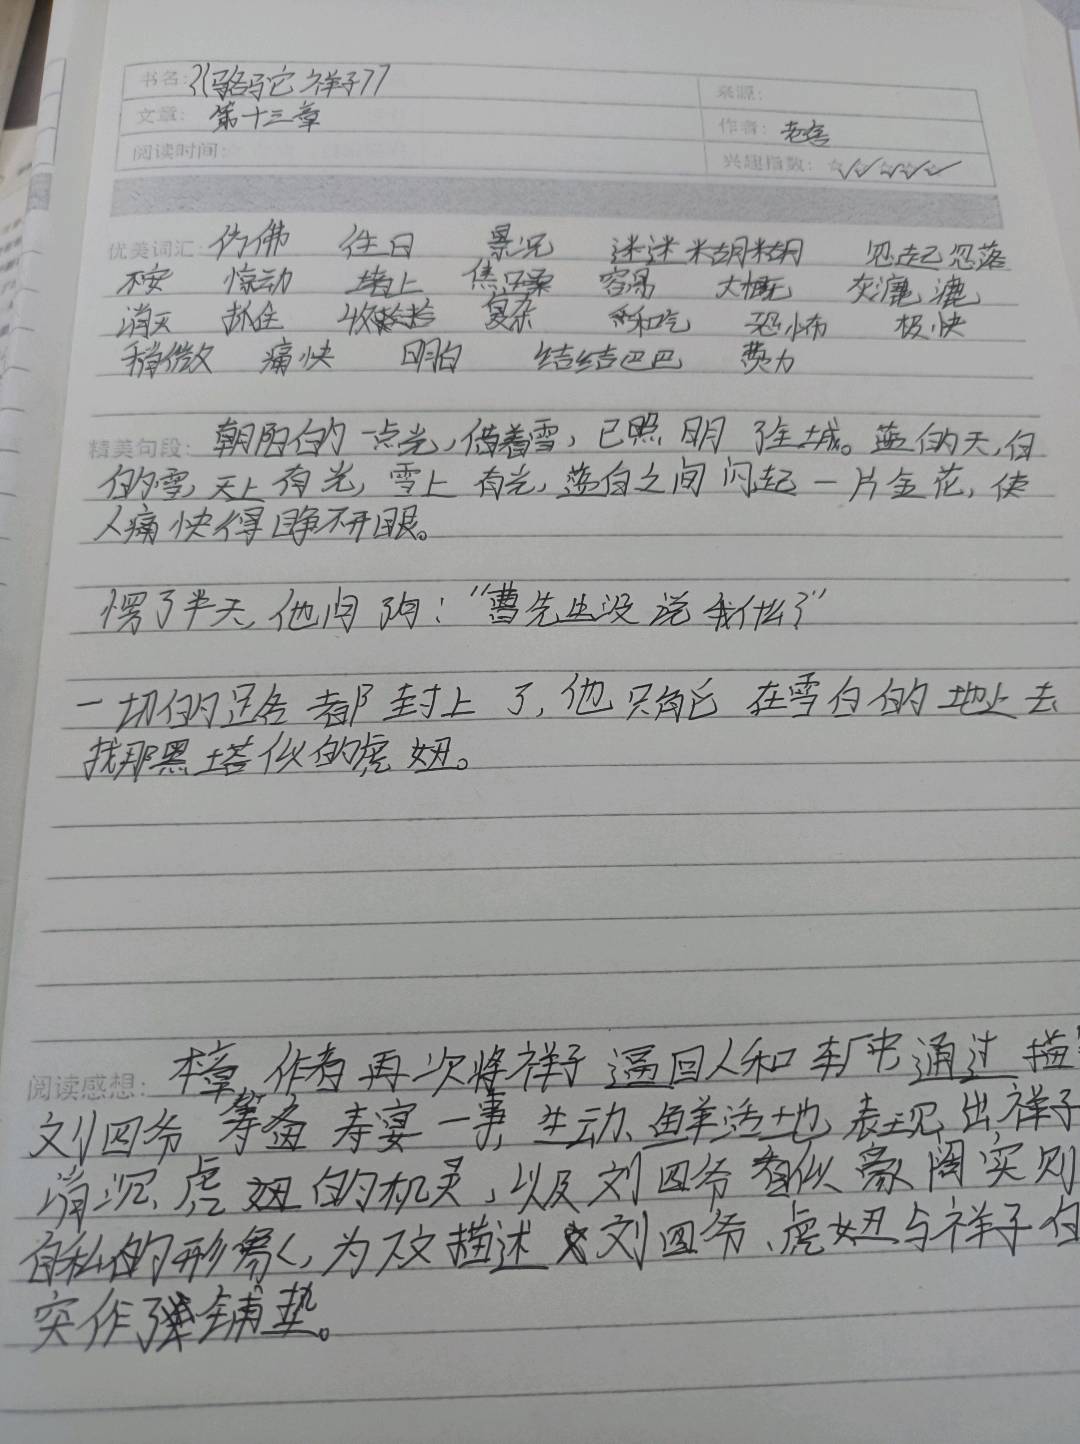 书名：《骆驼祥子》 来源：
文章：第十三章 作者：老舍
阅读时间： 兴趣指数：
优美词汇：仿佛 住日 景况 迷迷糊糊 忽起忽落
不安 惊动 堵上 焦躁 容易 大概 灰漉漉
消灭 抓住 收拾 复杂 和吃 恐怖 极快
稍微 痛快 明白 结结巴巴 费力
精美句段：朝阳的一点光，借着雪，已照明了全城。蓝的天，白
的雪，天上有光，雪上有光，蓝白之间闪起一片金花，使
人痛快得睁不开眼。
愣了半天，他问了句：“曹先生没说我什么？”
一切的路都封上了，他只能在雪白的地上去
找那黑塔似的虎妞。
阅读感想：本章，作者再次将祥子逼回人和车厂中通过描
刘四爷筹备寿宴一事，生动、鲜活地表现出祥子
消沉、虎妞的机灵，以及刘四爷看似豪阔实则
自私的形象，为下文描述刘四爷、虎妞与祥子
突作了铺垫。